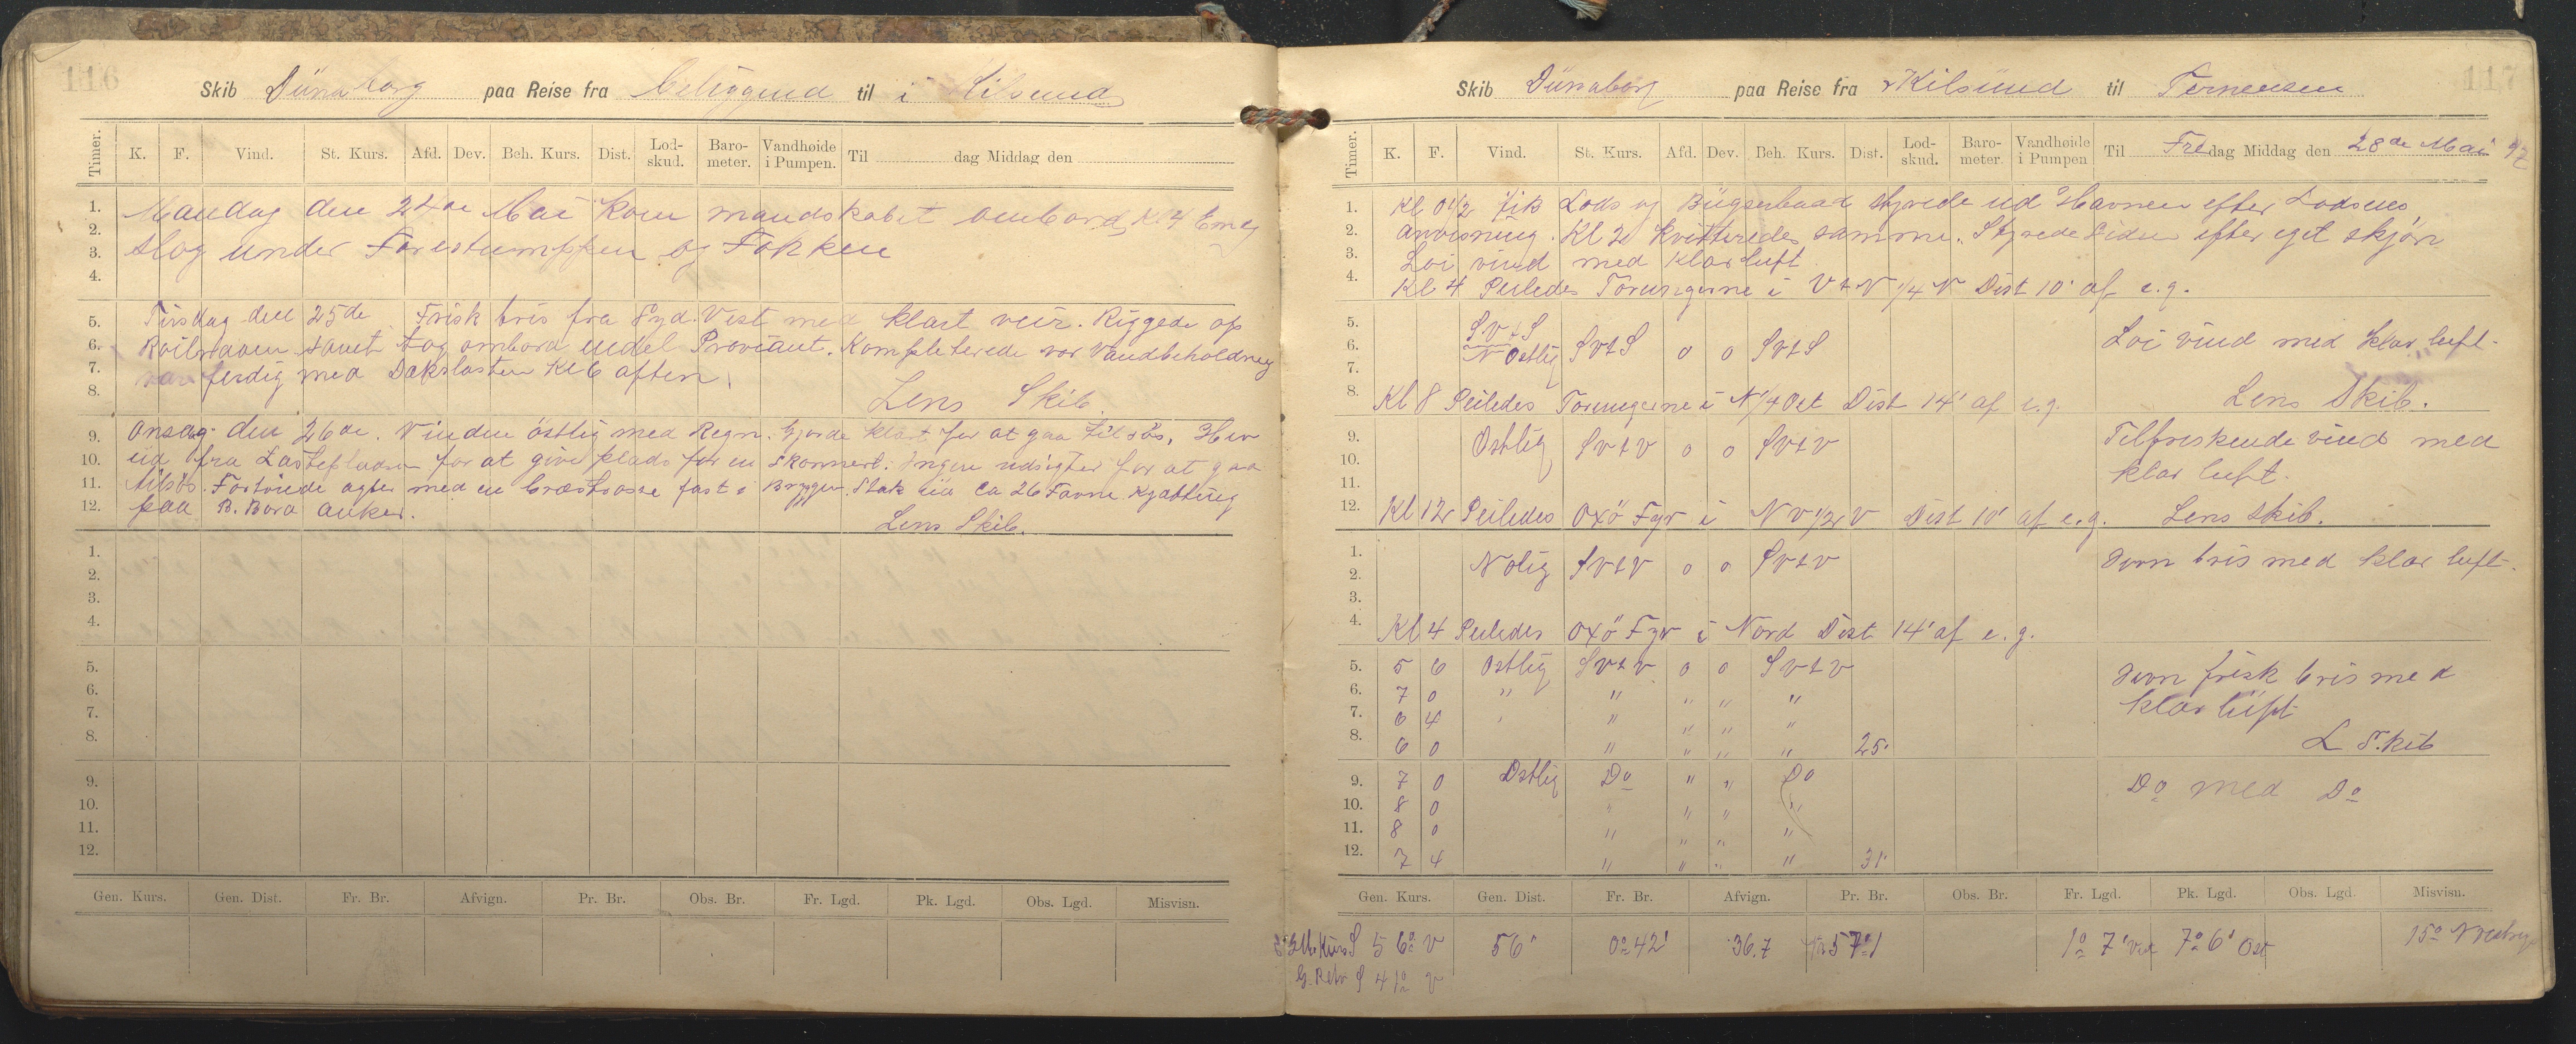 116
Skib Dünaborg paa Reise fra beliggend til i Kilsund
Timer. K. F. Vind. St. Kurs. Afd. Dev. Beh. Kurs. Dist. Lod-skud. Baro-meter. Vandhøide i Pumpen. Til dag Middag den
1. Mandag den 24de Mai kom mandskabet ombord Kl. 4 Em og
2.
3. slog under Forestumppen og Fokken
4.
5. Tirsdag den 25de Frisk bris fra Syd. Vest med klart veir. Riggede op
6. Roilraaen samt tog ombord endel Proviant. Kompleterede vor Vandbeholdning
7. var ferdig med Dækslasten Kl 6 aften
8. Lens Skib.
9. Onsdag den 26de. Vinden östlig med Regn. Gjorde klart for at gaa tilsös. Hev
10. ud fra Lastepladsen for at give plads for en Skonnert. Ingen udsigter for at gaa
11. tilsös. Fortöiede agter med en Græstrosse fast i Bryggen. Stak ud ca 26 Favne Kjætting
12. paa B. Bora anker.
Lens Skib.
1.
2.
3.
4.
5.
6.
7.
8.
9.
10.
11.
12.
Gen. Kurs. Gen. Dist. Fr. Br. Afvign. Pr. Br. Obs. Br. Fr. Lgd. Pk. Lgd. Obs. Lgd. Misvisn.
117
Skib Dünaborg paa Reise fra Kilsund til Terneuzen
Timer. K. F. Vind. St. Kurs. Afd. Dev. Beh. Kurs. Dist. Lod-skud. Baro-meter. Vandhøide i Pumpen Til Fredag Middag den 28de Mai 97
1. Kl 0 1/2 fik Lods og Bügserbaad styrede ud Havnen efter Lodsens
2. anvisning. Kl 2 kvitteredes samme. Styrede siden efter eget skjön
3. Loi vind med klar luft
4. Kl 4 Peiledes Torungerne i V t N 1/4 N Dist 10' af e. g.
5. S.V t S
6. N Ostlig SVtS o o SVtS Loi vind med klar luft.
7.
8. Kl 8 Peiledes Torungerne i N 1/4 Ost Dist 14' af e. g. Lens Skib.
9. Ostlig SVtV o o SVtV Tilfriskende vind med
10. klar luft.
11.
12. Kl 12 Peiledes Oxö Fyr i NV 1/2 V Dist 10' af e. g. Lens skib.
1. NOlig SVtV o o SVtV Jevn bris med klar luft.
2.
3.
4. Kl 4 Peiledes Oxö Fyr i Nord Dist 14' af e. g.
5. 5 6 Ostlig SVtV o o SVtV Jevn frisk bris med
6. 7 0 " " " " " klar luft
7. 6 4 " " " " "
8. 6 0 " " " " 25' L Skib
9. 7 0 Ostlig Do " " Do Do med Do
10. 8 0 " " " "
11. 8 0 " " " "
12. 7 4 " " " " 31'
Gen. Kurs. Gen. Dist. Fr. Br. Afvign. Pr. Br. Obs. Br. Fr. Lgd. Pk. Lgd. Obs. Lgd. Misvisn.
Kurs S 56° V 56' 0° 42' 36.7 57° 1° 7' Vest 7° 6' Ost 15° Vestlig
G. Retv S 41° V